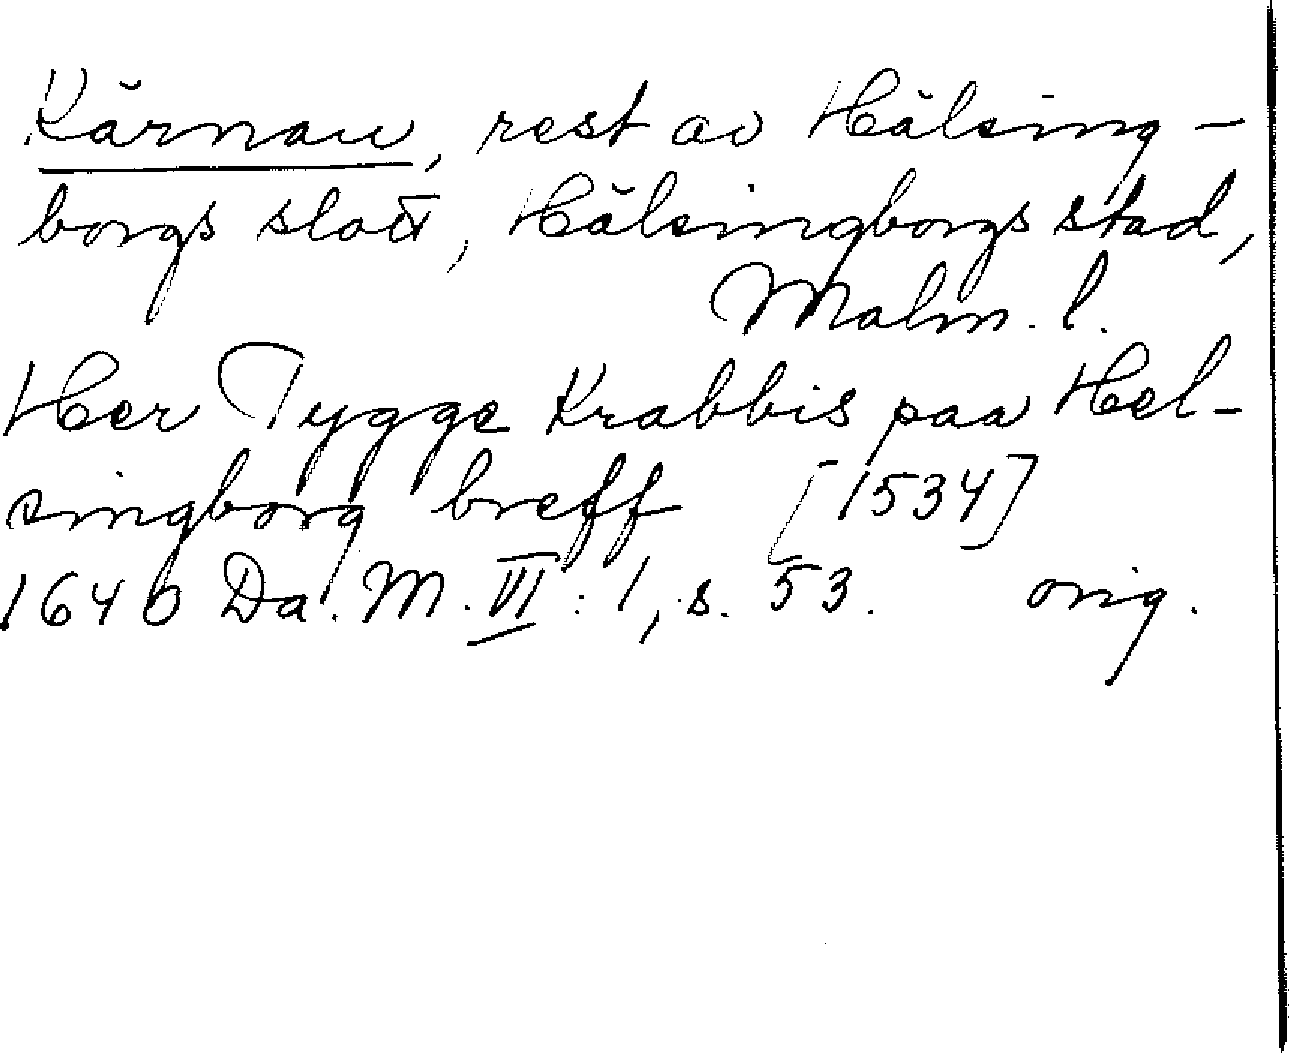 Kärnan, rest av Hälsing-
borgs slott, Hälsingborgs stad,
Malm. l.
Her Tygge Krabbis paa Hel-
singborg breff [1534]
1646 Da. M. VI: 1, s. 53. orig.